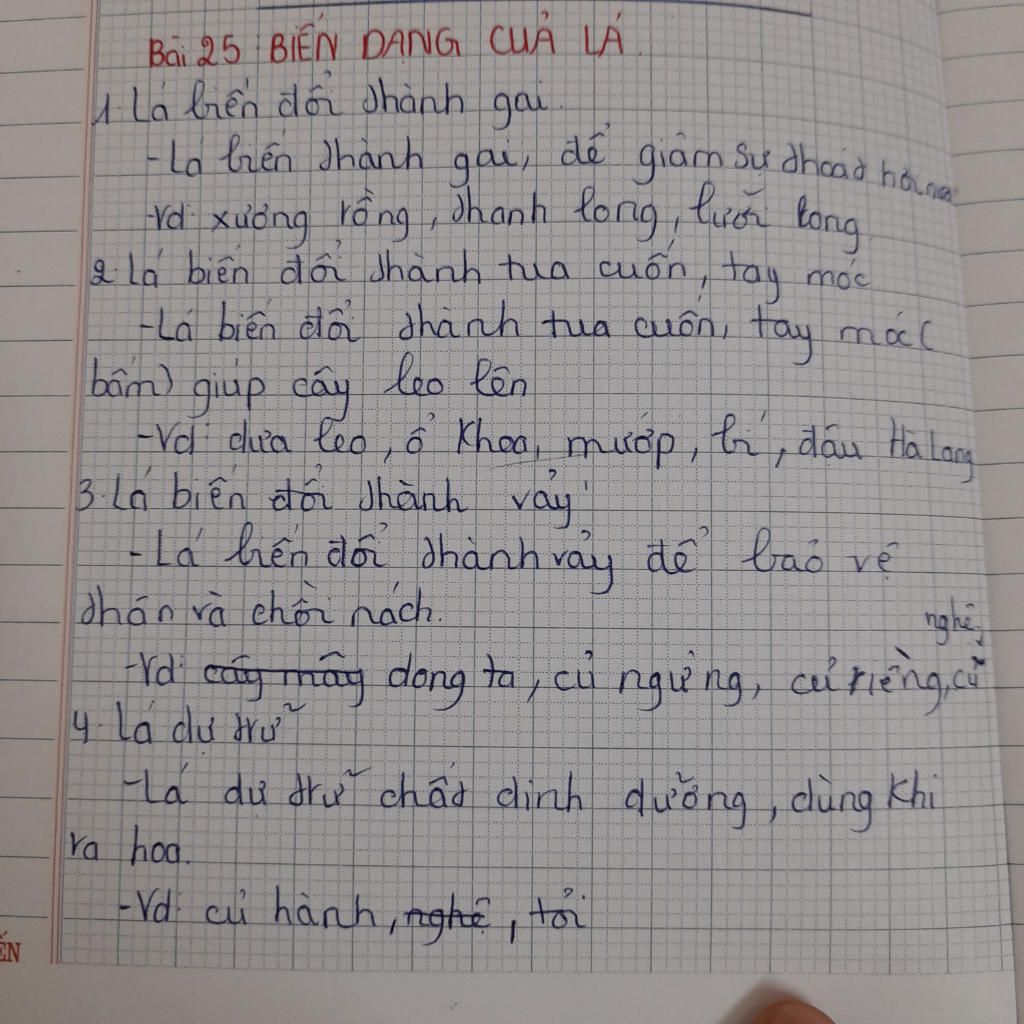 Bài 25 BIẾN DẠNG CỦA LÁ.
1. Lá biến đổi thành gai.
-Lá biến thành gai, để giảm sự thoát hơi nước
-Vd: xương rồng, thanh long, lưỡi long
2. Lá biến đổi thành tua cuốn, tay móc
-Lá biến đổi thành tua cuốn, tay móc (
bám) giúp cây leo lên
-Vd: dưa leo, ổ khoa, mướp, bí, đậu Hà Lang
3. Lá biến đổi thành vảy
-Lá biến đổi thành vảy để bảo vệ
thân và chồi nách.
nghệ,
-Vd: cây mây dong ta, củ ngừng, củ riềng, củ
4. Lá dự trữ
-Lá dự trữ chất dinh dưỡng, dùng khi
ra hoa.
-Vd: củ hành, nghệ, tỏi
ẾN